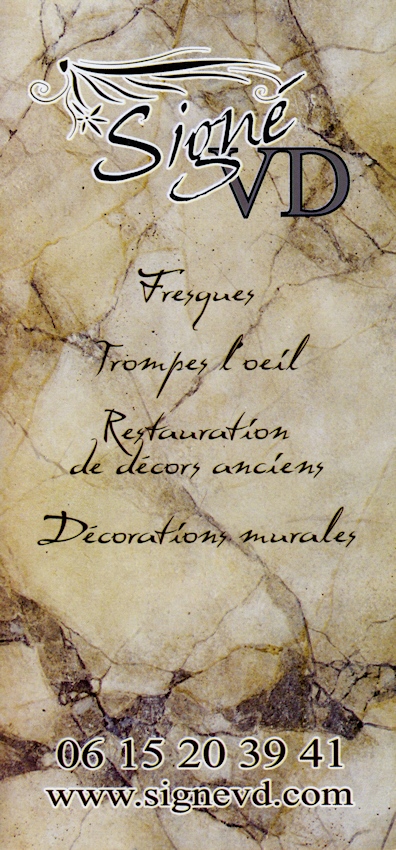 Signé
VD
Fresques
Trompes l'oeil
Restauration
de décors anciens
Décorations murales
06 15 20 39 41
www.signevd.com